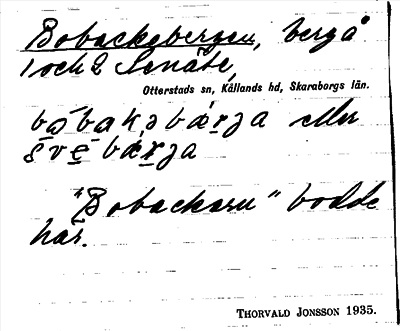 Bobackabergen, berg å
1 och 2 Senäte,
Otterstads sn, Kållands hd, Skaraborgs län.
bobakabärja eller
svebärja
"Bobackarn" bodde
här.
THORVALD JONSSON 1935.